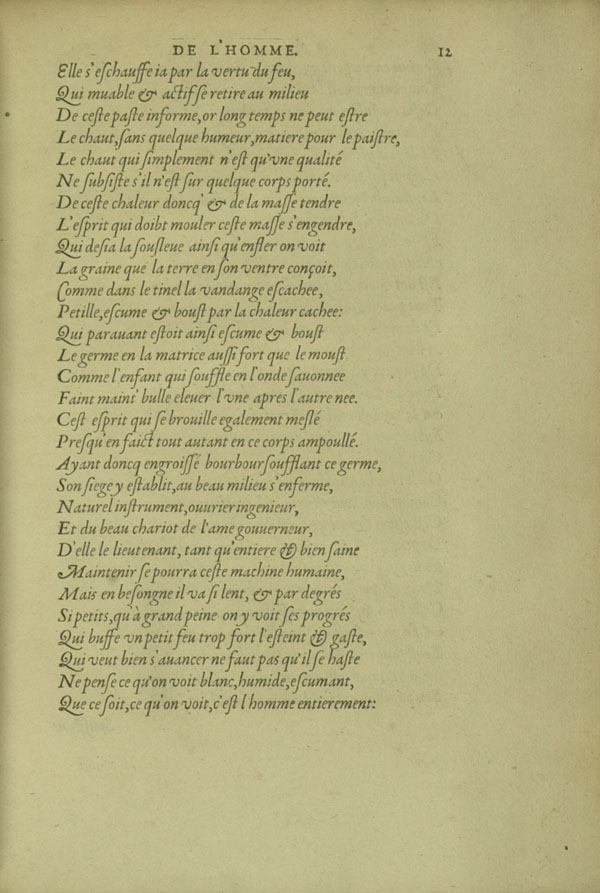 DE L'HOMME. 12
Elle s'eſchauffe ia par la vertu du feu,
Qui muable & actif ſe retire au milieu
De ceſte paſte informe, or long temps ne peut eſtre
Le chaut, ſans quelque humeur, matiere pour le paiſtre,
Le chaut qui ſimplement n'eſt qu'vne qualité
Ne ſubſiſte s'il n'eſt ſur quelque corps porté.
De ceſte chaleur doncq' & de la maſſe tendre
L'eſprit qui doibt mouler ceſte maſſe s'engendre,
Qui deſia la ſouſleue ainſi qu'enfler on voit
La graine que la terre en ſon ventre conçoit,
Comme dans le tinel la vandange eſcachee,
Petille, eſcume & bouſt par la chaleur cachee:
Qui parauant eſtoit ainſi eſcume & bouſt
Le germe en la matrice auſſi fort que le mouſt
Comme l'enfant qui ſouffle en l'onde ſauonnee
Faint maint' bulle eleuer l'vne apres l'autre nee.
Ceſt eſprit qui ſe brouille egalement meſlé
Preſqu'en faict tout autant en ce corps ampoullé.
Ayant doncq engroiſſé bourbourſoufflant ce germe,
Son ſiege y eſtablit, au beau milieu s'enferme,
Naturel inſtrument, ouurier ingenieur,
Et du beau chariot de l'ame gouuerneur,
D'elle le lieutenant, tant qu'entiere & bien ſaine
Maintenir ſe pourra ceſte machine humaine,
Mais en beſongne il va ſi lent, & par degrés
Si petits, qu'à grand peine on y voit ſes progrés
Qui buffe vn petit feu trop fort l'eſteint & gaſte,
Qui veut bien s'auancer ne faut pas qu'il ſe haſte
Ne penſe ce qu'on voit blanc, humide, eſcumant,
Que ce ſoit, ce qu'on voit, c'eſt l homme entierement: